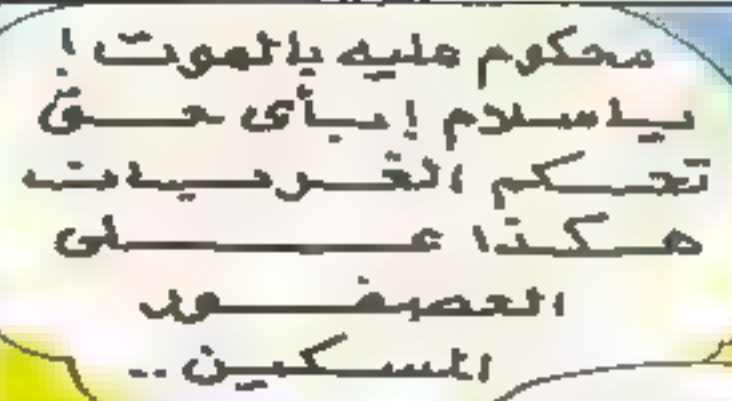 محكوم عليه بالموت !
يا سلام ! بأى حق
تحكم الفرحيات
هكذا على
العصفور
المسكين ..